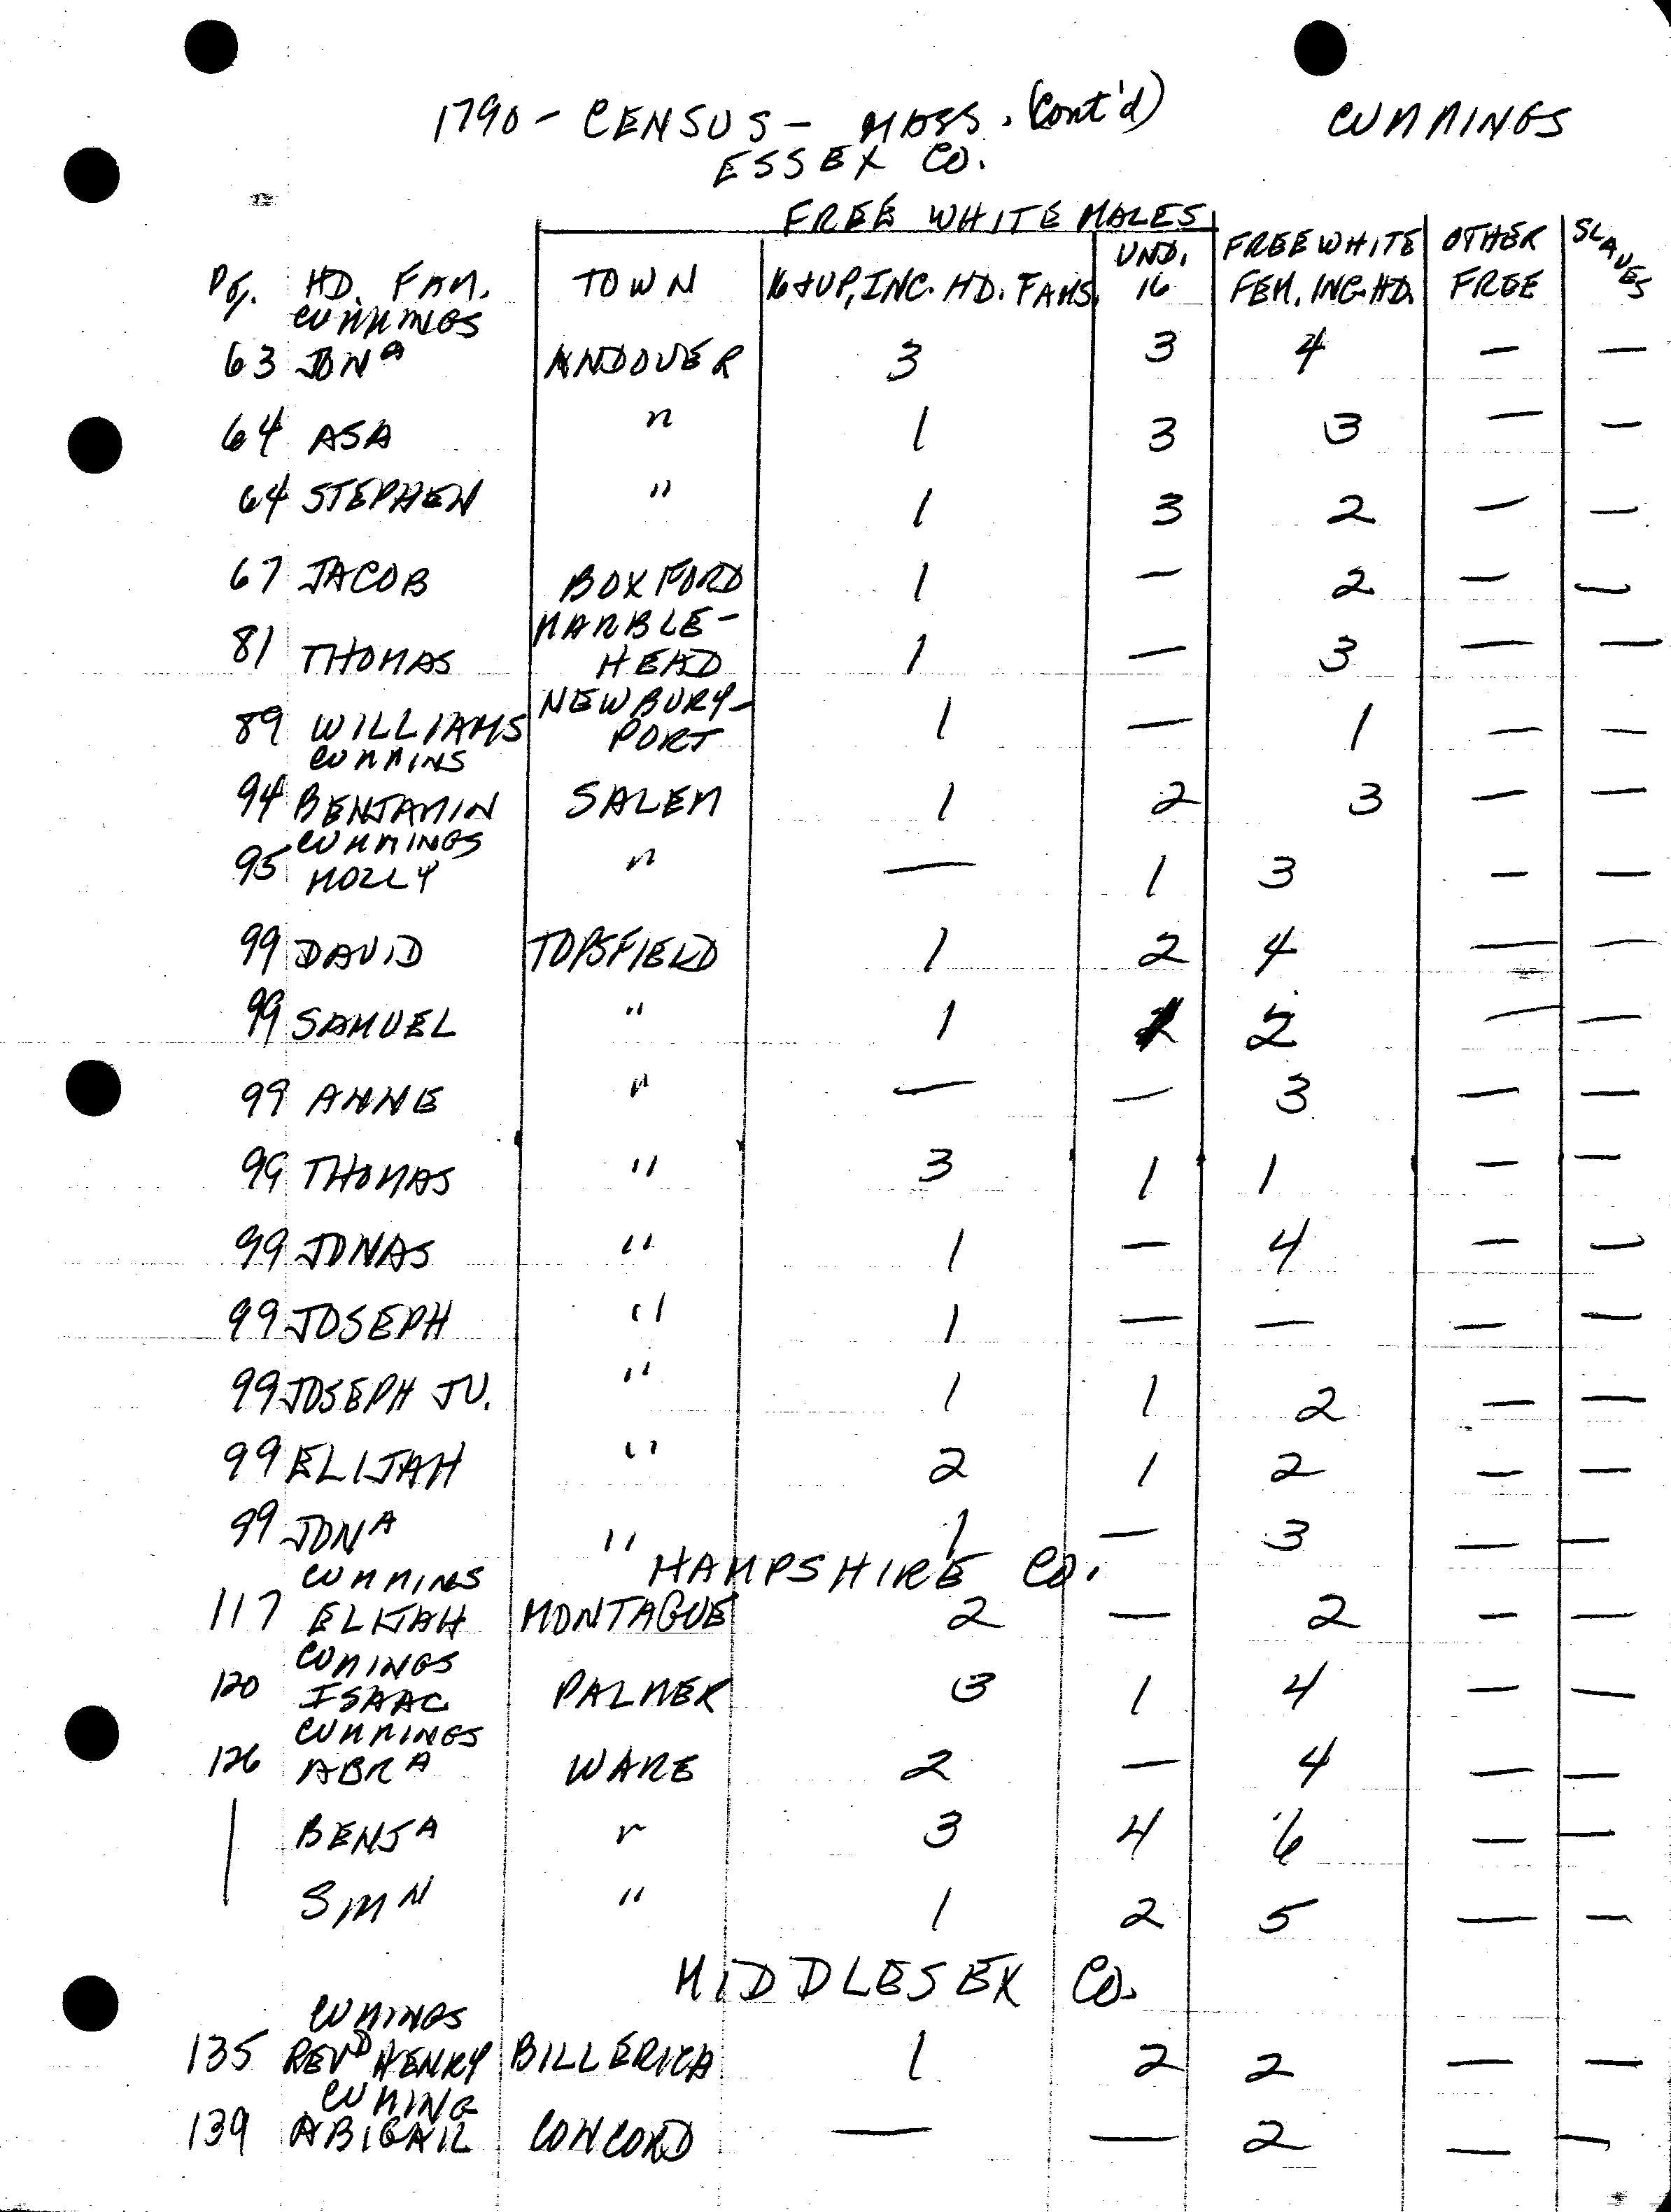 1790 - CENSUS - MASS. (Cont'd) CUMMINGS
ESSEX CO.
FREE WHITE MALES
PG. HD. FAM. TOWN 16 & UP, INC. HD. FAMS. UND. 16 FREE WHITE FEM. INC. HD. OTHER FREE SLAVES
CUMMINGS
63 JONA ANDOVER 3 3 4 — —
64 ASA " 1 3 3 — —
64 STEPHEN " 1 3 2 — —
67 JACOB BOXFORD 1 — 2 — —
81 THOMAS MARBLE-HEAD 1 — 3 — —
89 WILLIAMS NEWBURY-PORT 1 — 1 — —
CUMMINS
94 BENJAMIN SALEM 1 2 3 — —
CUMMINGS
95 MOLLY " — 1 3 — —
99 DAVID TOPSFIELD 1 2 4 — —
99 SAMUEL " 1 — —
99 ANNE " — — 3 — —
99 THOMAS " 3 1 1 — —
99 JONAS " 1 — 4 — —
99 JOSEPH " 1 — — — —
99 JOSEPH JU. " 1 1 2 — —
99 ELIJAH " 2 1 2 — —
99 JONA " 1 — 3 — —
HAMPSHIRE CO.
CUMMINS
117 ELIJAH MONTAGUE 2 — 2 — —
CUMINGS
120 ISAAC PALMER 3 1 4 — —
CUMMINGS
126 ABRA WARE 2 — 4 — —
| BENJA " 3 4 6 — —
SMN " 1 2 5 — —
MIDDLESEX CO.
CUMINGS
135 REVD HENRY BILLERICA 1 2 2 — —
CUMING
139 ABIGAIL CONCORD — — 2 — —